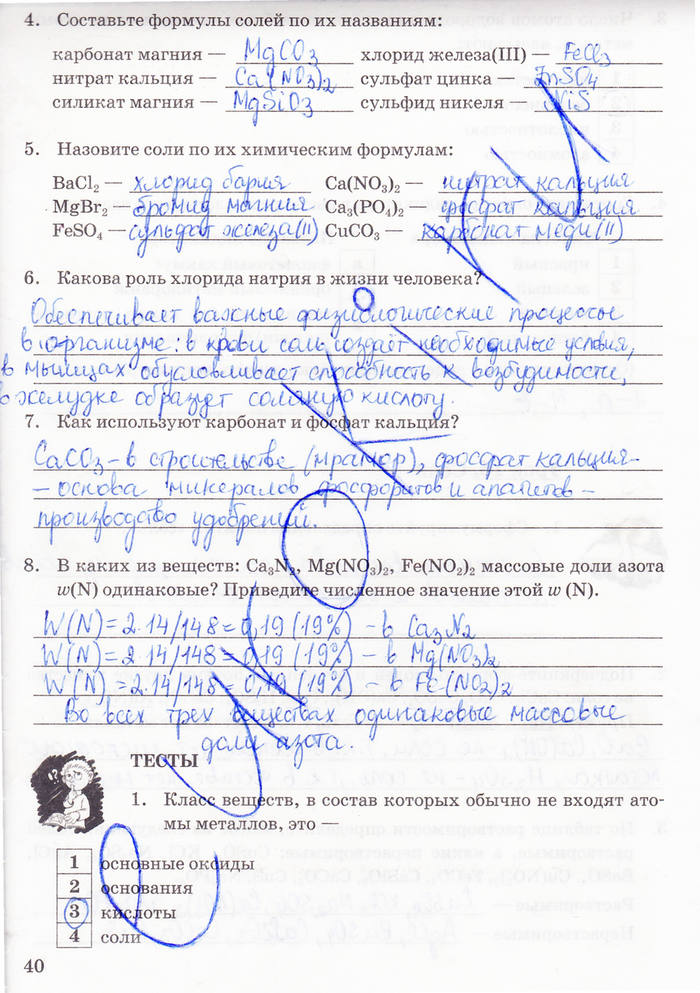 4. Составьте формулы солей по их названиям:
карбонат магния — MgCO3 хлорид железа(III) — FeCl3
нитрат кальция — Ca(NO3)2 сульфат цинка — ZnSO4
силикат магния — MgSiO3 сульфид никеля — NiS
5. Назовите соли по их химическим формулам:
BaCl2 — хлорид бария Ca(NO3)2 — нитрат кальция
MgBr2 — бромид магния Ca3(PO4)2 — фосфат кальция
FeSO4 — сульфат железа(II) CuCO3 — карбонат меди(II)
6. Какова роль хлорида натрия в жизни человека?
Обеспечивает важные физиологические процессы
в организме: в крови соль создаёт необходимые условия,
в мышцах обусловливает способность к возбудимости,
в желудке образует соляную кислоту.
7. Как используют карбонат и фосфат кальция?
CaCO3 - в строительстве (мрамор), фосфат кальция-
- основа минералов фосфоритов и апатитов -
производство удобрений.
8. В каких из веществ: Ca3N2, Mg(NO3)2, Fe(NO2)2 массовые доли азота
w(N) одинаковые? Приведите численное значение этой w (N).
W(N) = 2·14/148 = 0,19 (19%) - в Ca3N2
W(N) = 2·14/148 = 0,19 (19%) - в Mg(NO3)2
W(N) = 2·14/148 = 0,19 (19%) - в Fe(NO2)2
Во всех трех веществах одинаковые массовые
доли азота.
ТЕСТЫ
1. Класс веществ, в состав которых обычно не входят ато-
мы металлов, это —
1 основные оксиды
2 основания
3 кислоты
4 соли
40